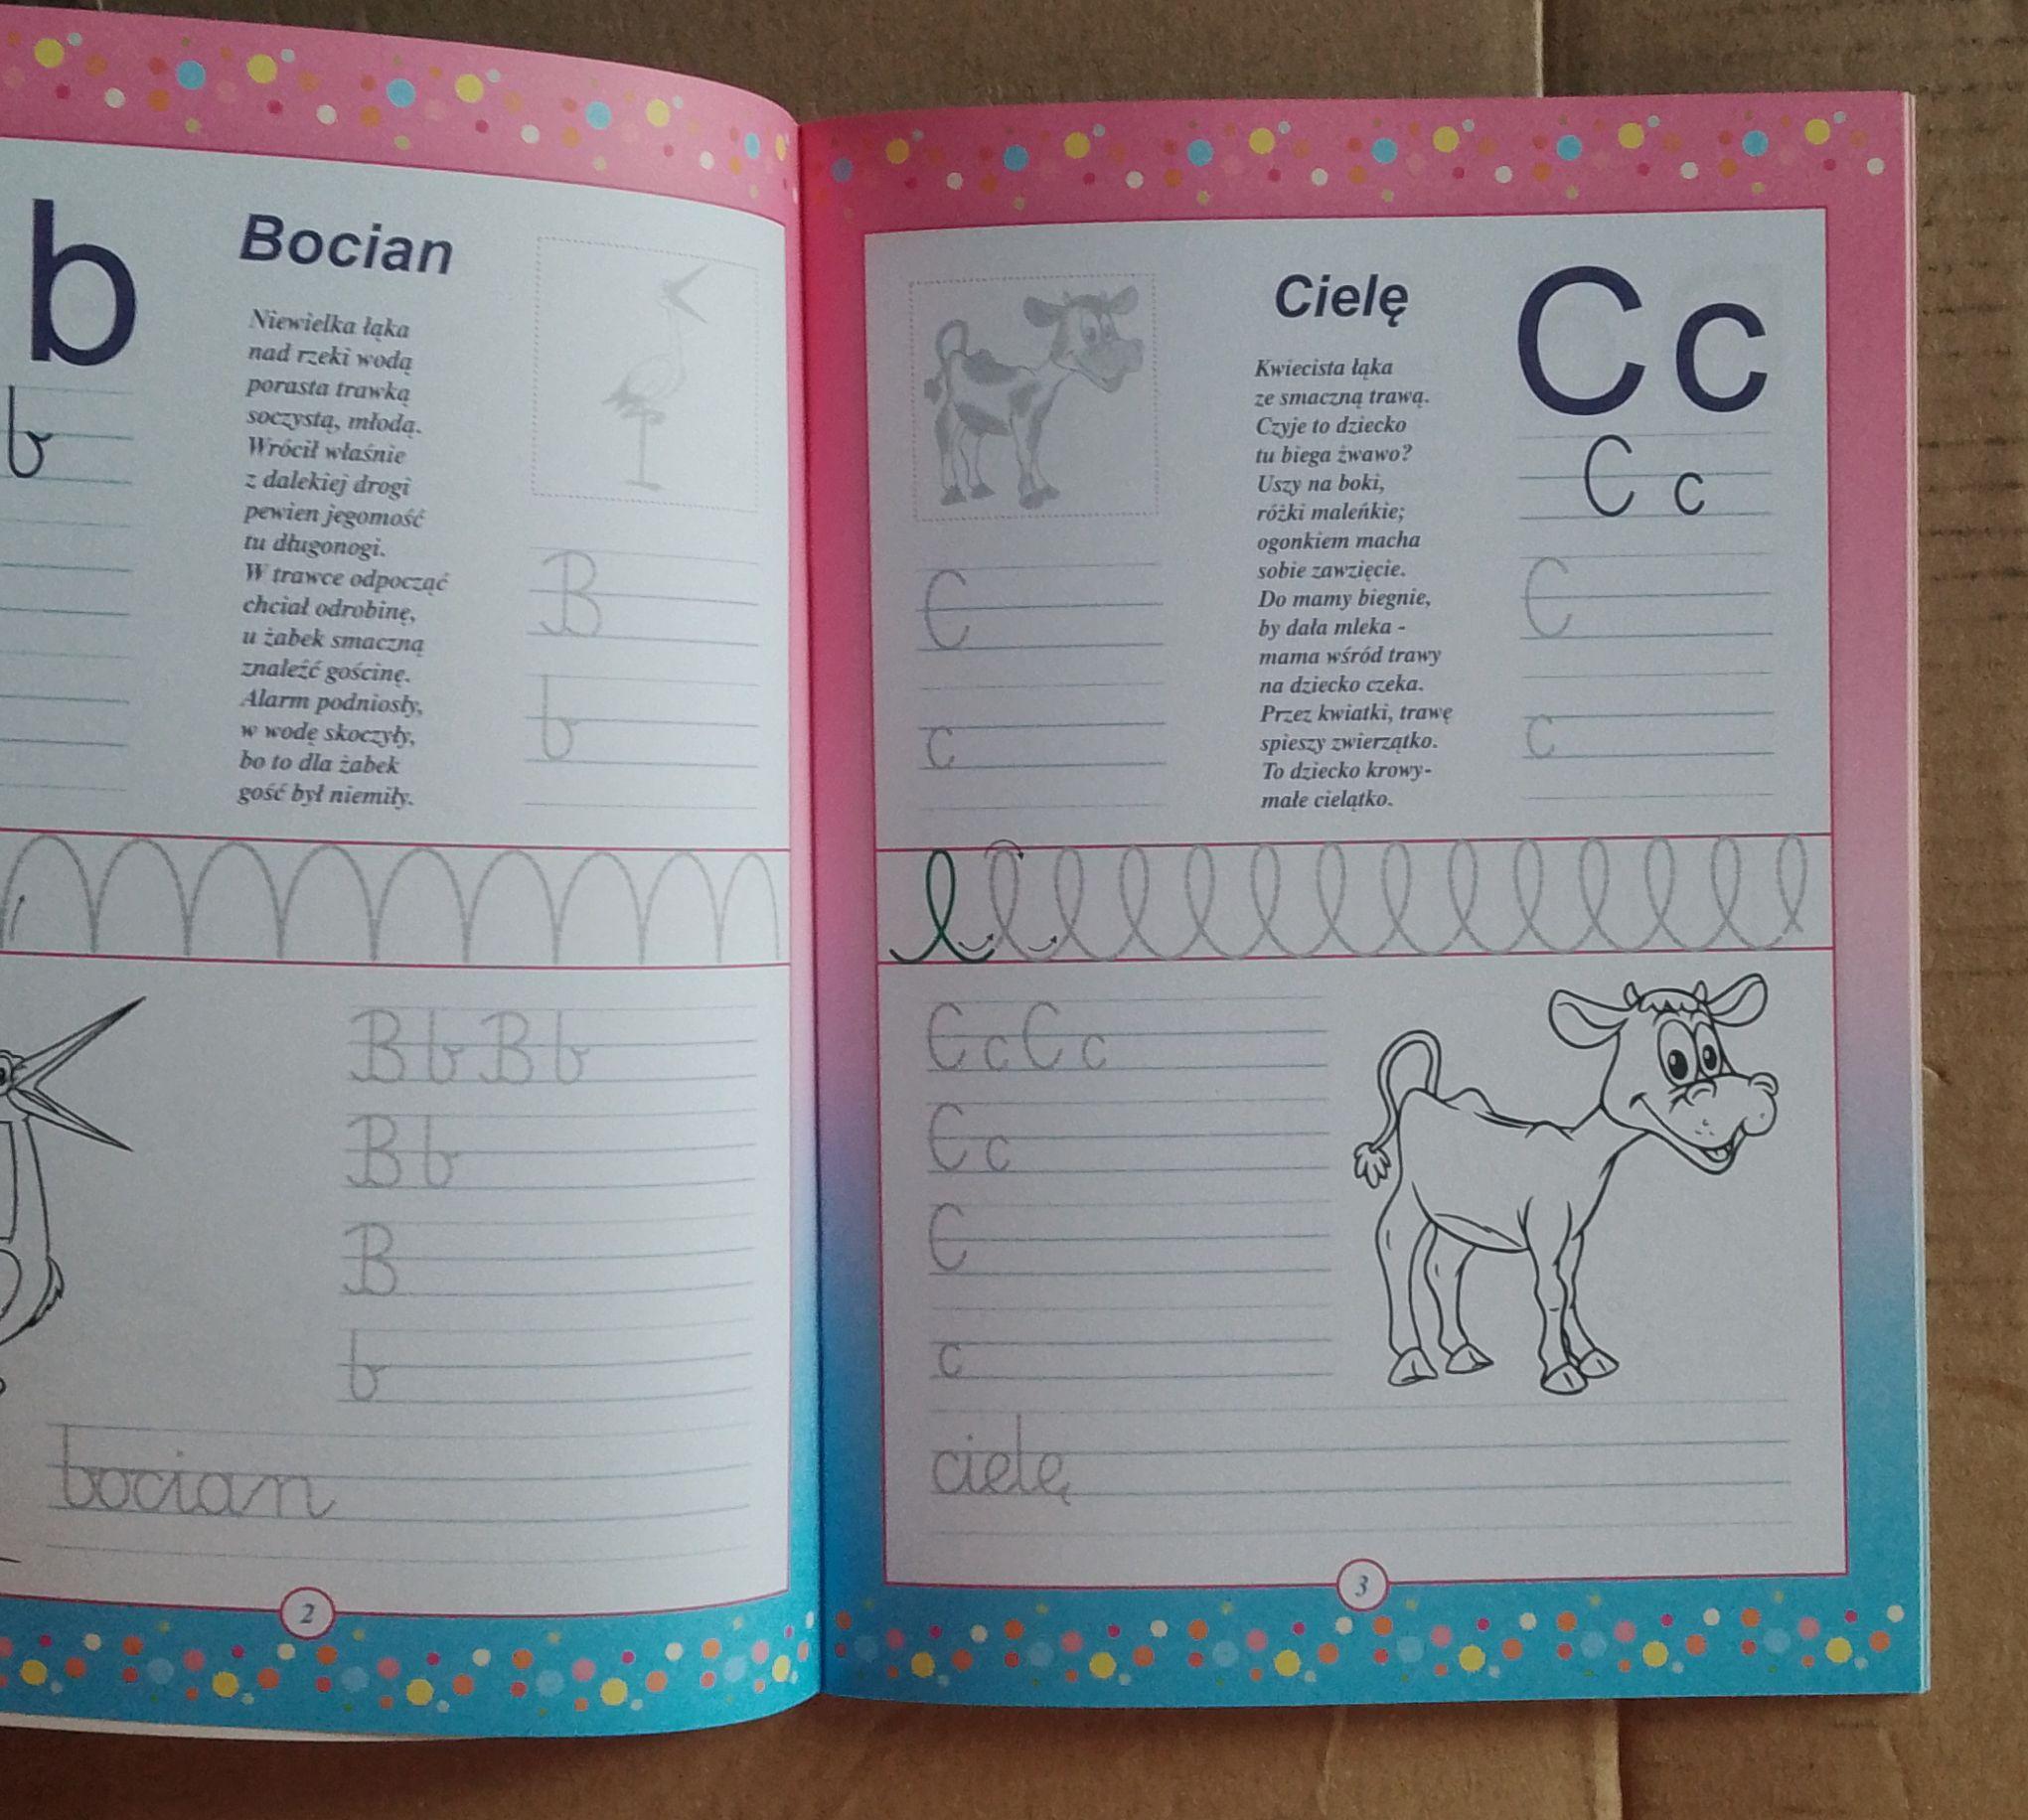 b
Bocian
Niewielka łąka
nad rzeki wodą
porasta trawką
soczystą, młodą.
Wrócił właśnie
z dalekiej drogi
pewien jegomość
tu długonogi.
W trawce odpocząć
chciał odrobinę,
u żabek smaczną
znaleźć gościnę.
Alarm podniosły,
w wodę skoczyły,
bo to dla żabek
gość był niemiły.
b
B
b
B b B b
B b
B
b
bocian
2
Cielę
C c
Kwiecista łąka
ze smaczną trawą.
Czyje to dziecko
tu biega żwawo?
Uszy na boki,
różki maleńkie;
ogonkiem macha
sobie zawzięcie.
Do mamy biegnie,
by dała mleka -
mama wśród trawy
na dziecko czeka.
Przez kwiatki, trawę
spieszy zwierzątko.
To dziecko krowy-
małe cielątko.
C c
C
C
c
c
C c C c
C c
C
c
cielę
3